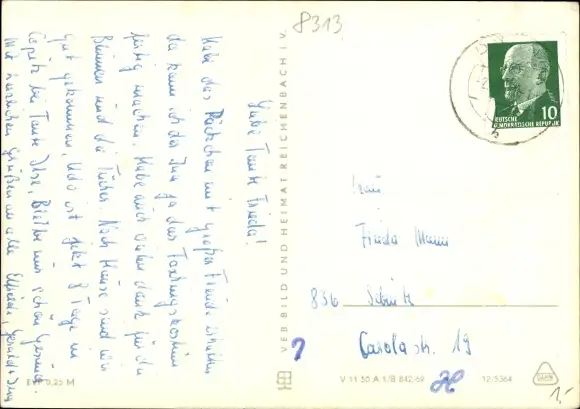 8313
DEUTSCHE
DEMOKRATISCHE REPUBLIK
10
Liebe Tante Frieda!
Habe das Päckchen mit großer Freude erhalten
da kann ich der Ina ja das Faschingskostüm
fertig machen. Habe auch vielen dank für die
Blumen und die Tücher. Nach Hause sind wir
gut gekommen, Udo ist jetzt 8 Tage in
bei Tante Ilse. Bleibe uns schön Gesund.
Mit herzlichen Grüßen an alle Elfriede, Gerald + Ina
EVP 0,25 M
VEB BILD UND HEIMAT REICHENBACH I. V.
Frau
Frieda
836 Sebnitz
Carolastr. 19
V 11 50 A 1/B 842/69 12/5364
1,-